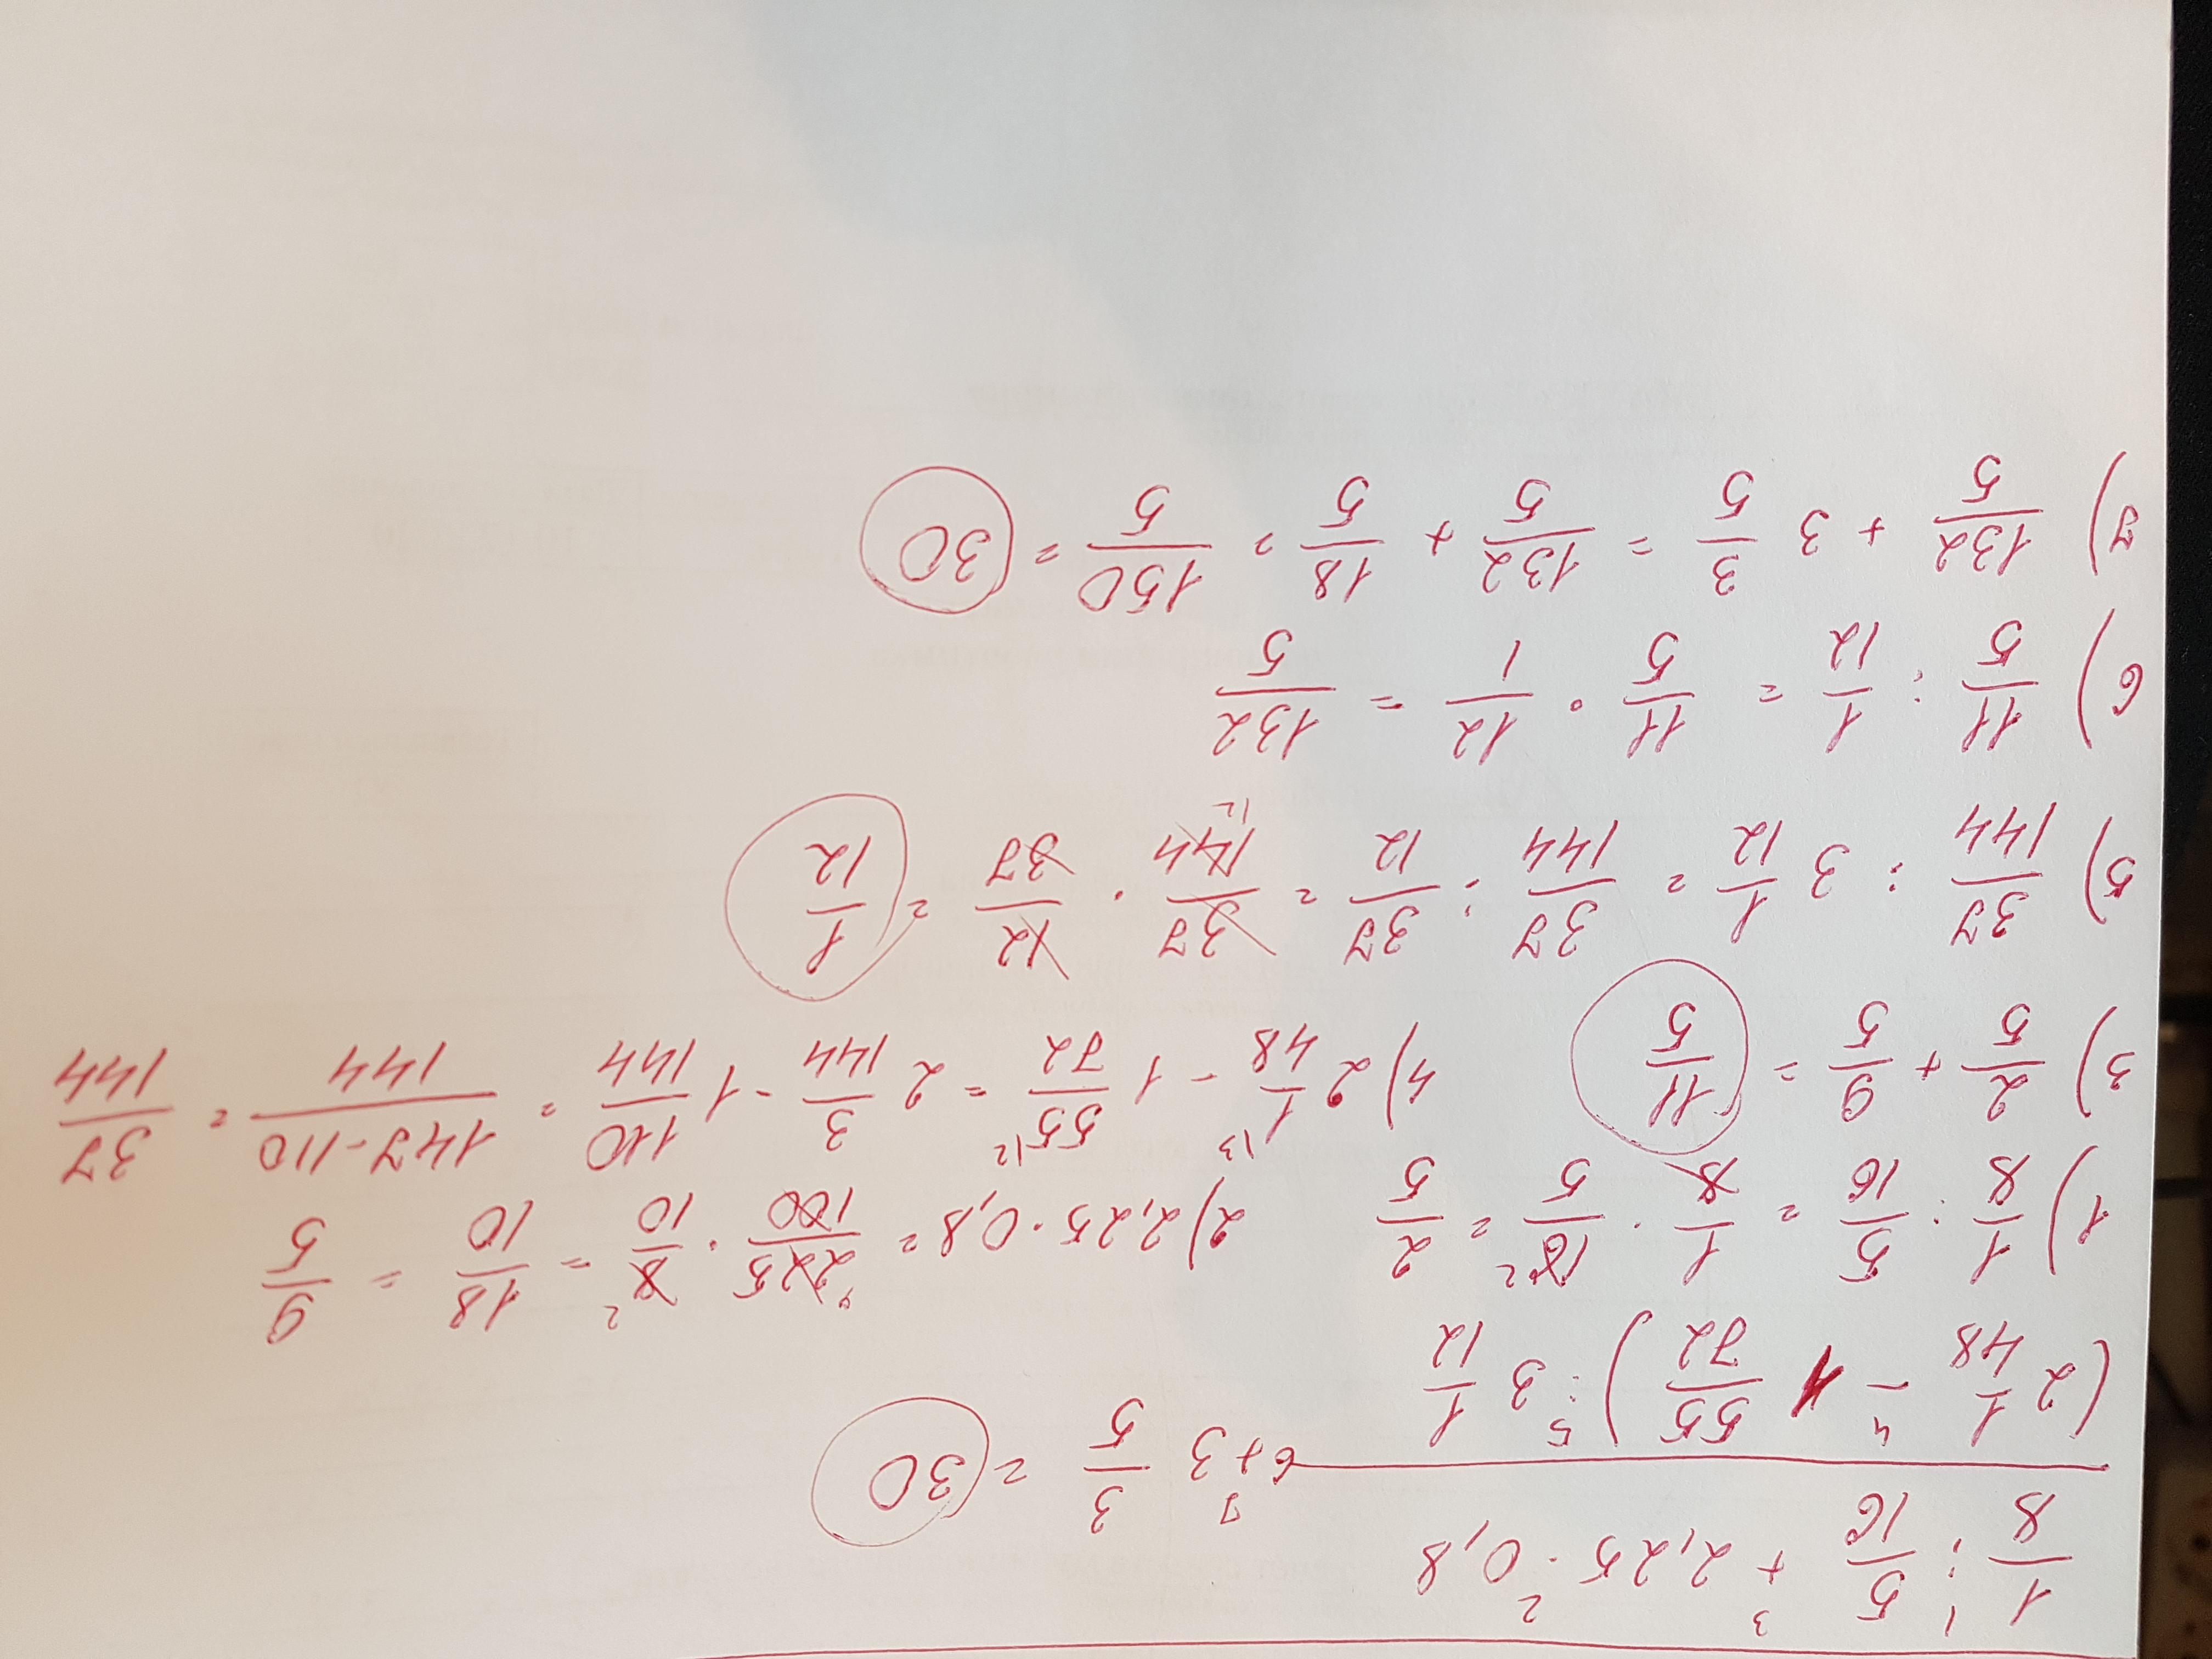 1/8 : 5/16 + 2,25 · 0,8
(2 1/48 − 1 55/72) : 3 1/12 + 3 3/5 = 30
1) 1/8 : 5/16 = 1/8 · 16/5 = 2/5 2) 2,25 · 0,8 = 225/100 · 8/10 = 18/10 = 9/5
3) 2/5 + 9/5 = 11/5 4) 2 1/48 − 1 55/72 = 2 3/144 − 1 110/144 = 147-110/144 = 37/144
5) 37/144 : 3 1/12 = 37/144 : 37/12 = 37/144 · 12/37 = 1/12
6) 11/5 : 1/12 = 11/5 · 12/1 = 132/5
7) 132/5 + 3 3/5 = 132/5 + 18/5 = 150/5 = 30